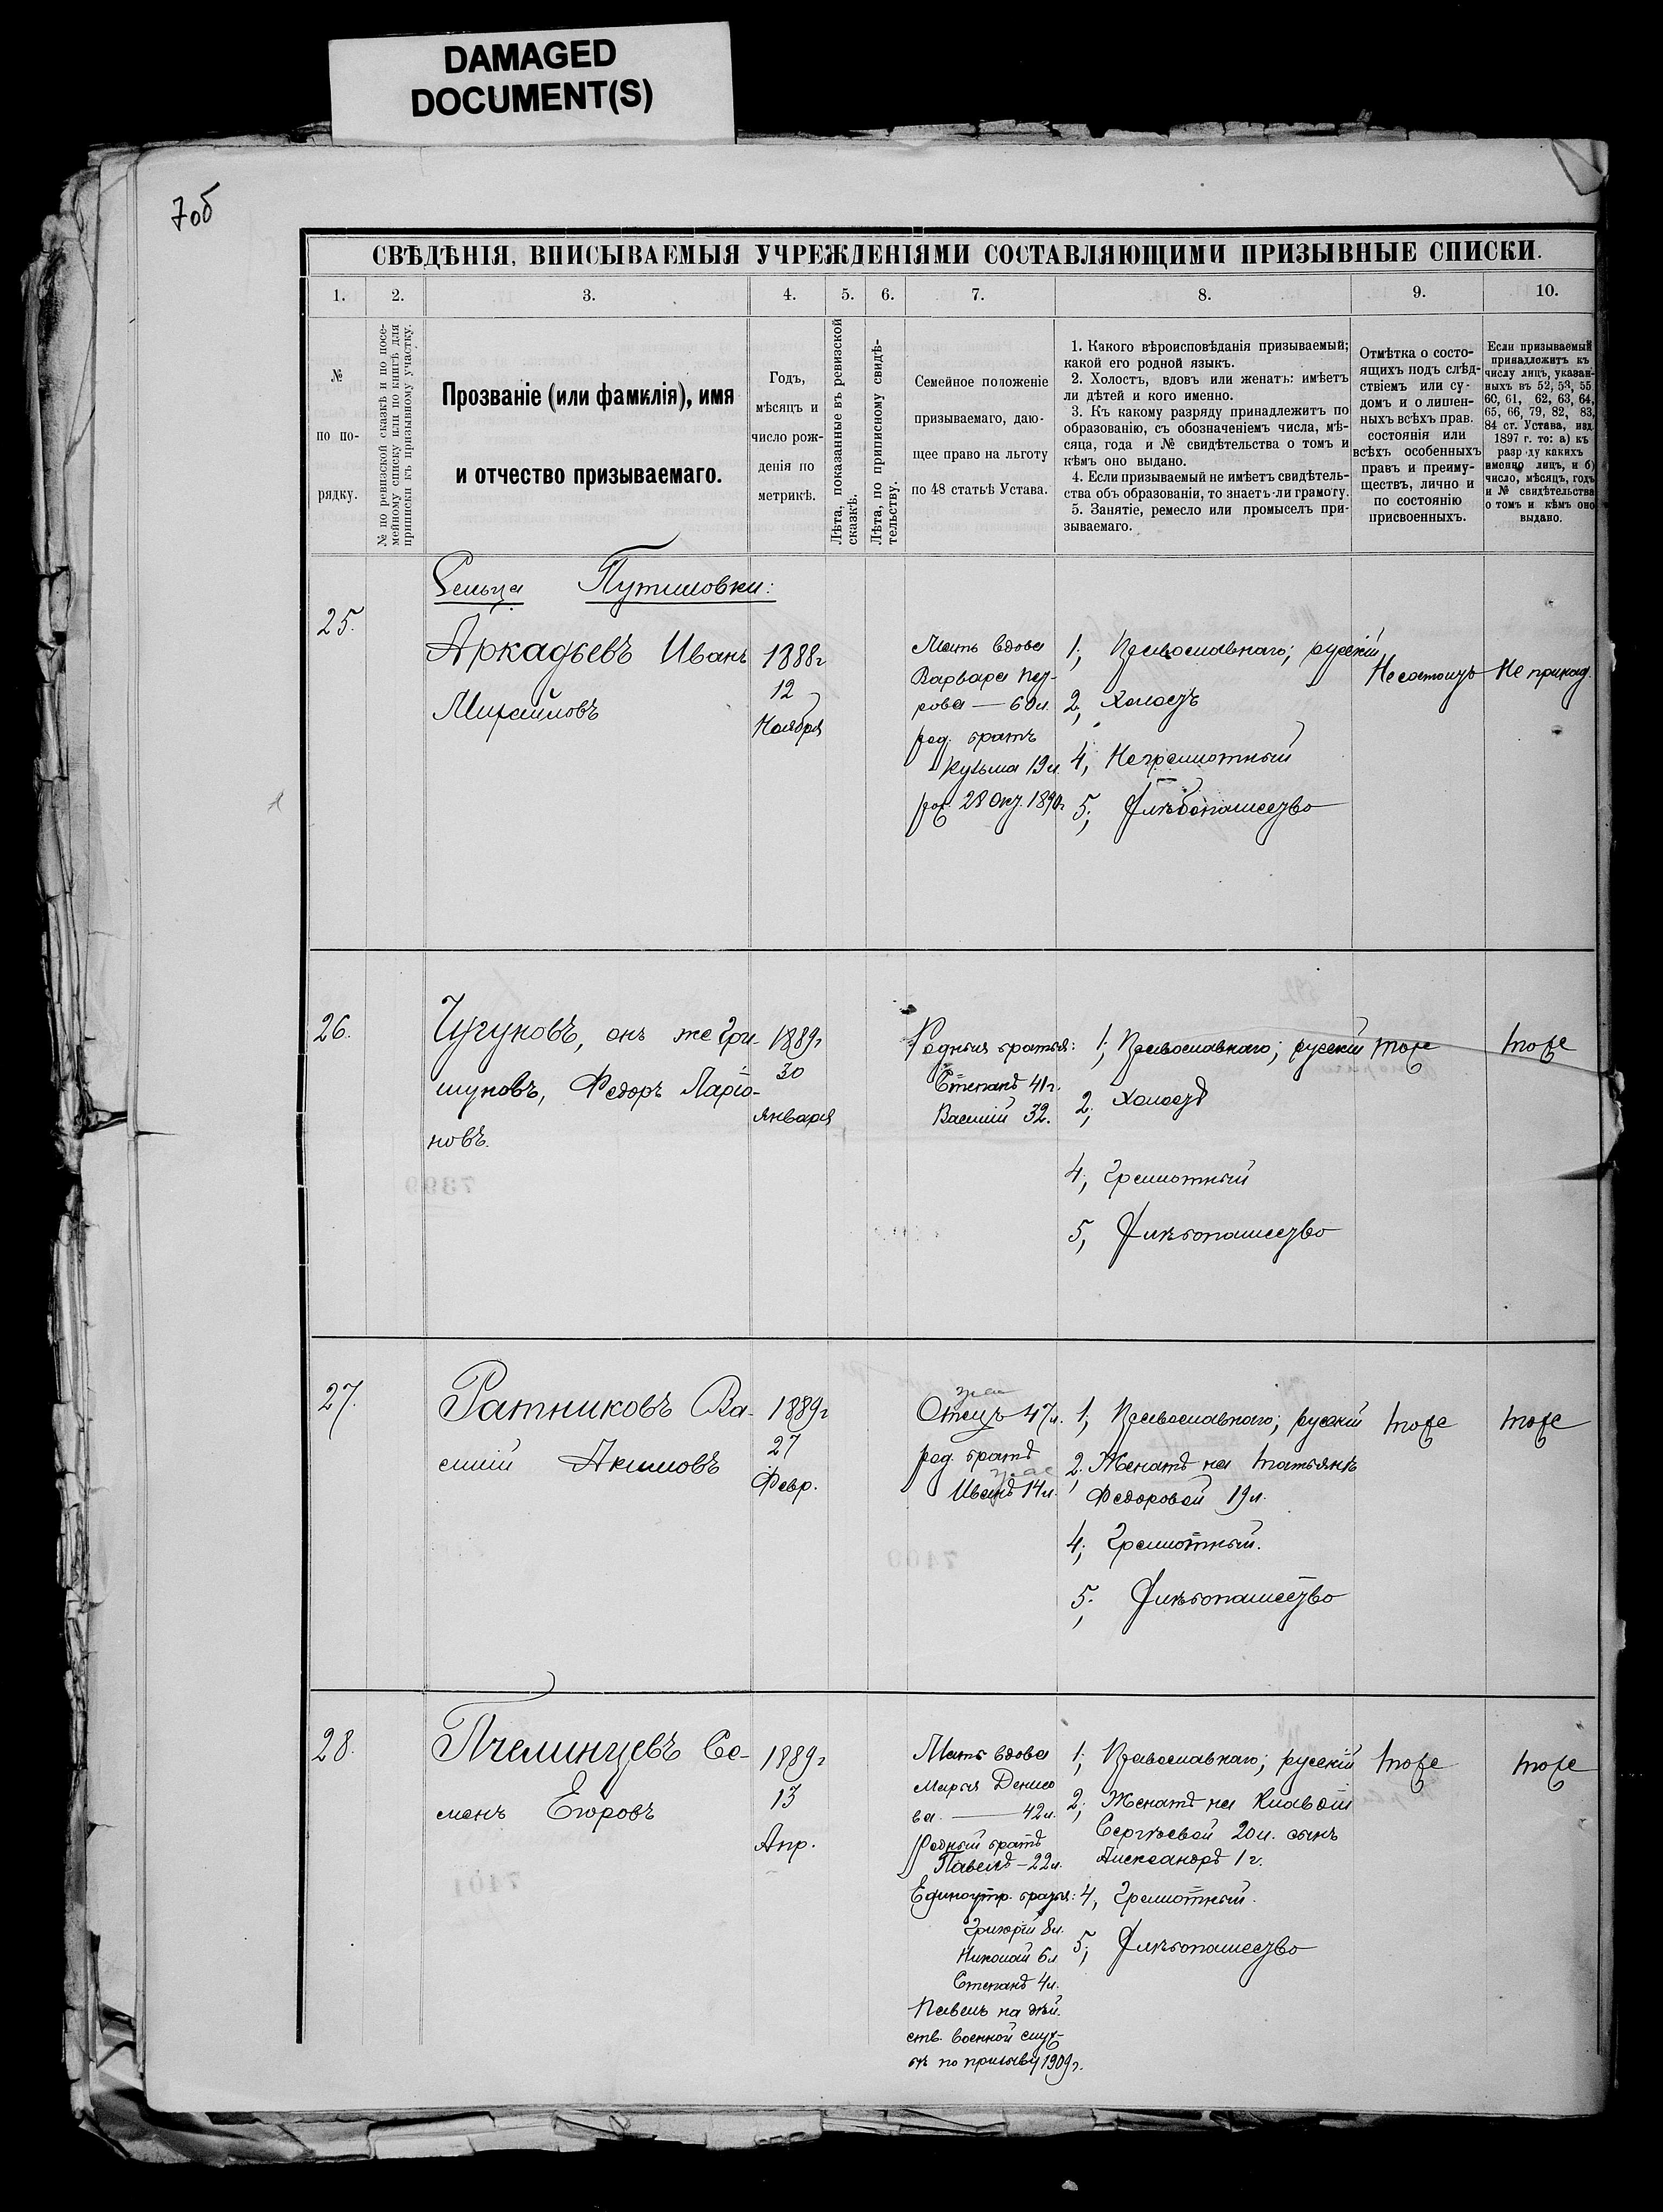 DAMAGED
DOCUMENT(S)
7об
СВѢДѢНІЯ, ВПИСЫВАЕМЫЯ УЧРЕЖДЕНІЯМИ СОСТАВЛЯЮЩИМИ ПРИЗЫВНЫЕ СПИСКИ.
1. 2. 3. 4. 5. 6. 7. 8. 9. 10.
№
по по-
рядку.
№ по ревизской сказкѣ и по посе-
мейному списку или по книгѣ для
приписки къ призывному участку.
Прозваніе (или фамилія), имя
и отчество призываемаго.
Годъ,
мѣсяцъ и
число рож-
денія по
метрикѣ.
Лѣта, показанные въ ревизской
сказкѣ.
Лѣта, по приписному свидѣ-
тельству.
Семейное положеніе
призываемаго, даю-
щее право на льготу
по 48 статьѣ Устава.
1. Какого вѣроисповѣданія призываемый;
какой его родной языкъ.
2. Холостъ, вдовъ или женатъ: имѣетъ
ли дѣтей и кого именно.
3. Къ какому разряду принадлежитъ по
образованію, съ обозначеніемъ числа, мѣ-
сяца, года и № свидѣтельства о томъ и
кѣмъ оно выдано.
4. Если призываемый не имѣетъ свидѣтель-
ства объ образованіи, то знаетъ-ли грамоту.
5. Занятіе, ремесло или промыселъ при-
зываемаго.
Отмѣтка о состо-
ящихъ подъ слѣд-
ствіемъ или су-
домъ и о лишен-
ныхъ всѣхъ прав.
состоянія или
всѣхъ особенныхъ
правъ и преиму-
ществъ, лично и
по состоянію
присвоенныхъ.
Если призываемый
принадлежитъ къ
числу лицъ, указан-
ныхъ въ 52, 53, 55
60, 61, 62, 63, 64,
65, 66, 79, 82, 83,
84 ст. Устава, изд.
1897 г. то: а) къ
разр ду какихъ
именно лицъ, и б)
число, мѣсяцъ, годъ
и № свидѣтельства
о томъ и кѣмъ оно
выдано.
Сельца Путиловки:
25.
Аркадьевъ Иванъ
Михайловъ
1888г
12
Ноября
Мать вдова
Варвара Пет-
рова — 60л.
род. братъ
Кузьма 19л
рож. 28 Окт. 1890г
1; Православнаго; русскій
2; Холостъ
4; Неграмотный
5; Хлѣбопашество
Не состоитъ
Не принад.
26.
Чугуновъ, онъ же Гри-
шуновъ, Федоръ Ларіо-
новъ.
1889г
30
Января
Родныя братья:
Степанъ 41г.
Василій 32.
1; Православнаго; русскій
2; Холостъ
4; Грамотный
5; Хлѣбопашество
тоже
тоже
27.
Ратниковъ Ва-
силій Акимовъ
1889г
27
Февр.
Отецъ 47л.
род. братъ
Иванъ 14л.
1; Православнаго; русскій
2. Женатъ на Татьянѣ
Федоровой 19л.
4; Грамотный.
5. Хлѣбопашество
тоже
тоже
28.
Пчелинцевъ Се-
менъ Егоровъ
1889г
13
Апр.
Мать вдова
Марья Денисо
ва. — 42л.
Родный братъ
Павелъ – 22л.
Единоутр. братья:
Григорій 8л.
Николай 6л
Степанъ 4л.
Павелъ на дѣй.
ств. военной служ-
бѣ по призыву 1909г.
1; Православнаго; русскій
2; Женатъ на Клавдіи
Сергѣевой 20л. сынъ
Александръ 1г.
4, Грамотный.
5; Хлѣбопашество
тоже
тоже